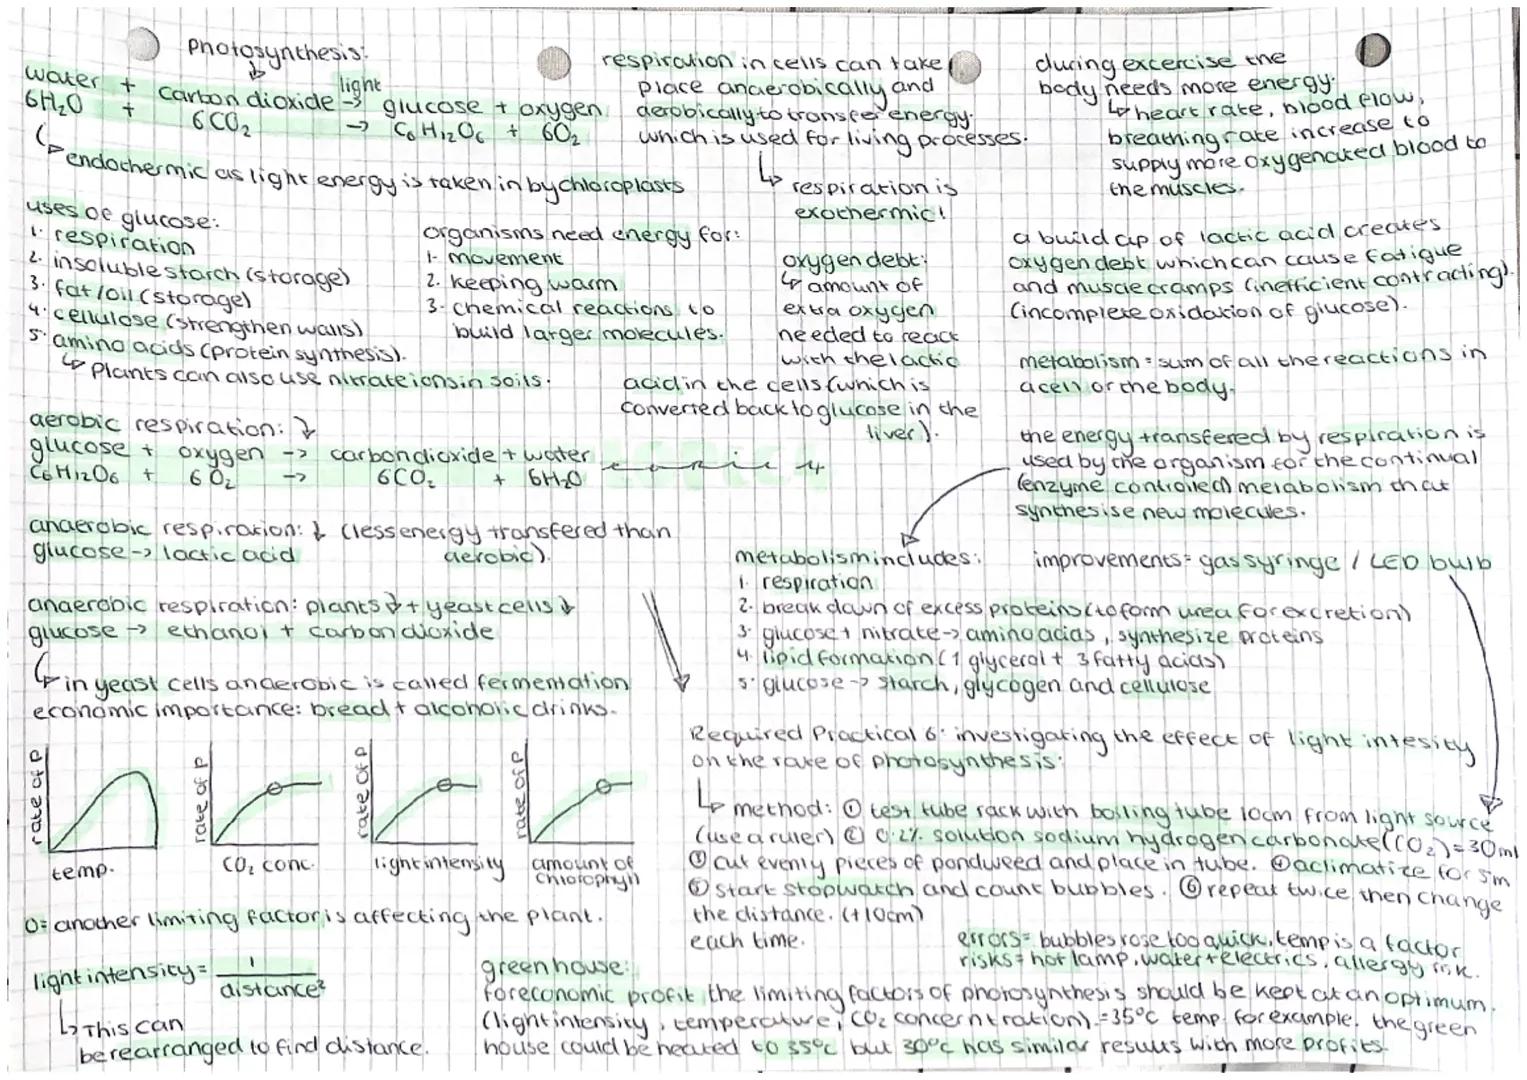 photosynthesis:
water + carbon dioxide light → glucose + oxygen
6H₂O + 6CO₂ → C₆H₁₂O₆ + 6O₂
↳ endothermic as light energy is taken in by chloroplasts
respiration in cells can take
place anaerobically and
aerobically to transfer energy.
which is used for living processes.
↳ respiration is
exothermic!
during excercise the
body needs more energy.
↳ heart rate, blood flow,
breathing rate increase to
supply more oxygenated blood to
the muscles.
uses of glucose:
1. respiration
2. insoluble starch (storage)
3. fat/oil (storage)
4. cellulose (strengthen walls)
5. amino acids (protein synthesis).
↳ plants can also use nitrate ions in soils.
organisms need energy for:
1. movement
2. keeping warm
3. chemical reactions to
build larger molecules.
oxygen debt:
↳ amount of
extra oxygen
needed to react
with the lactic
acid in the cells (which is
converted back to glucose in the
liver).
a build up of lactic acid creates
oxygen debt which can cause fatigue
and muscle cramps (inefficient contracting).
(incomplete oxidation of glucose).
metabolism = sum of all the reactions in
a cell or the body.
aerobic respiration: ↓
glucose + oxygen → carbon dioxide + water
C₆H₁₂O₆ + 6O₂ → 6CO₂ + 6H₂O
topic 4
the energy transfered by respiration is
used by the organism for the continual
(enzyme controlled) metabolism that
synthesise new molecules.
anaerobic respiration: ↓ (less energy transfered than
aerobic).
glucose → lactic acid
anaerobic respiration: plants ↓ + yeast cells ↓
glucose → ethanol + carbon dioxide
↳ in yeast cells anaerobic is called fermentation
economic importance: bread + alcoholic drinks.
metabolism includes:
1. respiration
2. break down of excess proteins (to form urea for excretion)
3. glucose + nitrate → amino acids, synthesize proteins
4. lipid formation (1 glycerol + 3 fatty acids)
5. glucose → starch, glycogen and cellulose
improvements = gas syringe / LED bulb
rate of P
temp.
rate of P
CO₂ conc.
rate of P
light intensity
rate of P
amount of
chlorophyll
O = another limiting factor is affecting the plant.
light intensity = 1
distance²
↳ This can
be rearranged to find distance.
Required Practical 6: investigating the effect of light intesity
on the rate of photosynthesis:
↳ method: ① test tube rack with boiling tube 10cm from light source
(use a ruler) ② 0.2% solution sodium hydrogen carbonate (CO₂) = 30ml
③ cut evenly pieces of pondweed and place in tube. ④ aclimatize for 5m
⑤ start stopwatch and count bubbles. ⑥ repeat twice then change
the distance. (+10cm)
each time.
errors = bubbles rose too quick, temp is a factor
risks = hot lamp, water + electrics, allergy risk.
greenhouse:
for economic profit, the limiting factors of photosynthesis should be kept at an optimum.
(light intensity, temperature, CO₂ concerntration). = 35°C temp. for example, the green
house could be heated to 35°c but 30°c has similar results with more profits.